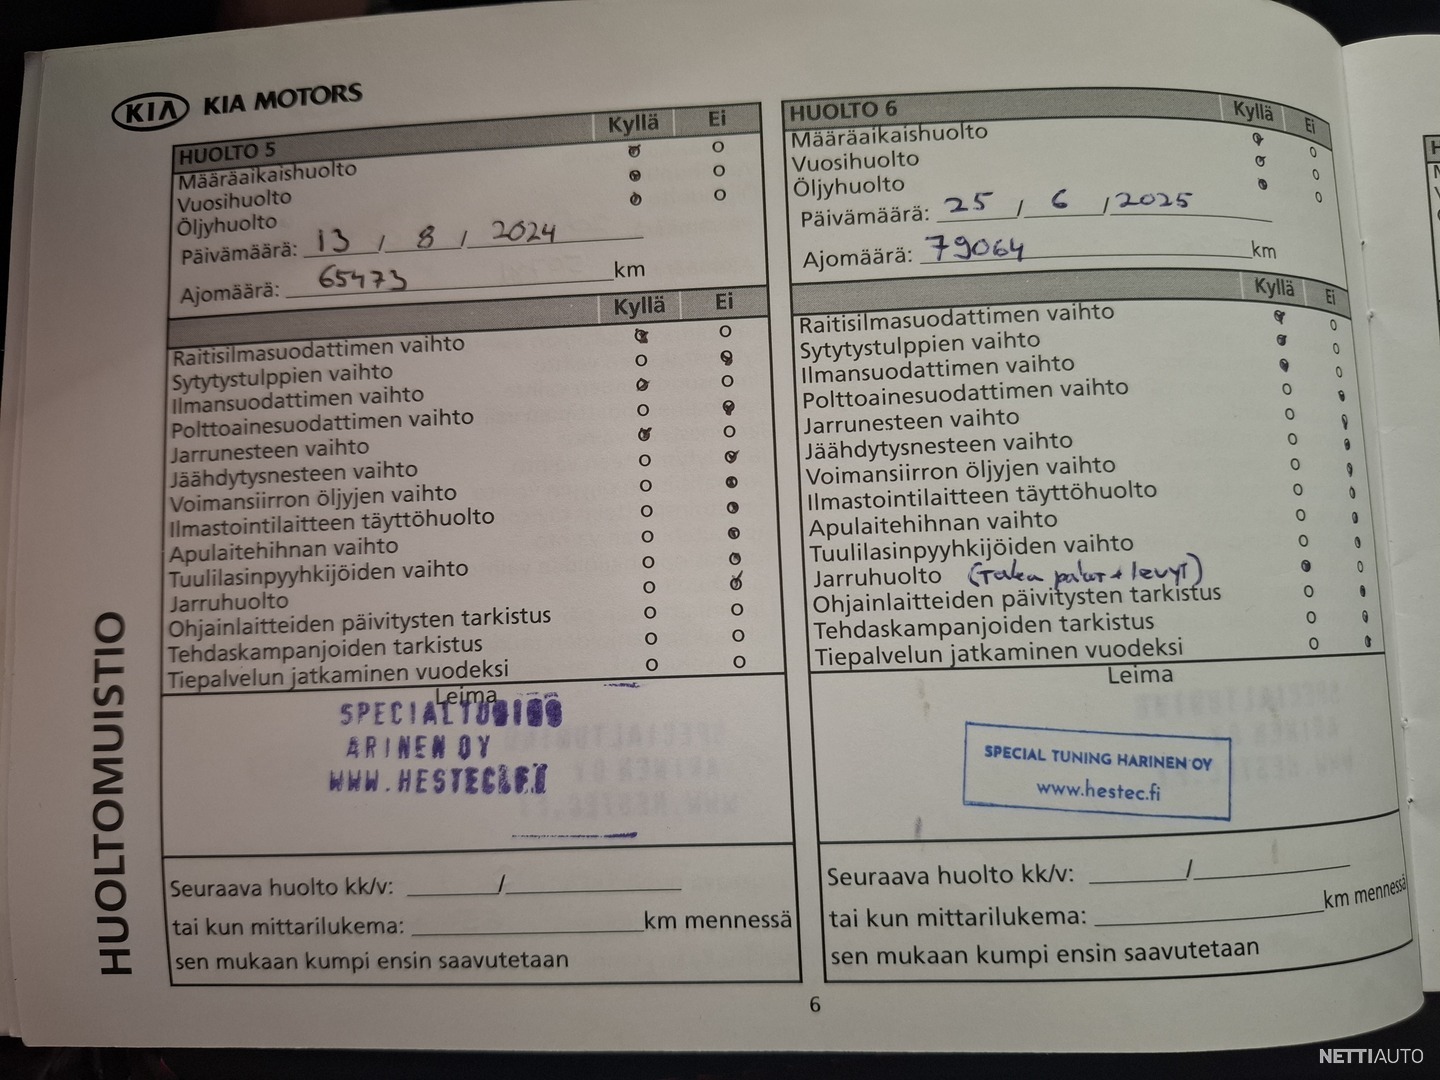 KIA KIA MOTORS
HUOLTOMUISTIO
HUOLTO 5 Kyllä Ei
Määräaikaishuolto
Vuosihuolto
Öljyhuolto
Päivämäärä: 13 / 8 / 2024
Ajomäärä: 65473 km
Kyllä Ei
Raitisilmasuodattimen vaihto
Sytytystulppien vaihto
Ilmansuodattimen vaihto
Polttoainesuodattimen vaihto
Jarrunesteen vaihto
Jäähdytysnesteen vaihto
Voimansiirron öljyjen vaihto
Ilmastointilaitteen täyttöhuolto
Apulaitehihnan vaihto
Tuulilasinpyyhkijöiden vaihto
Jarruhuolto
Ohjainlaitteiden päivitysten tarkistus
Tehdaskampanjoiden tarkistus
Tiepalvelun jatkaminen vuodeksi
Leima
ARINEN OY
Seuraava huolto kk/v: /
tai kun mittarilukema: km mennessä
sen mukaan kumpi ensin saavutetaan
HUOLTO 6 Kyllä Ei
Määräaikaishuolto
Vuosihuolto
Öljyhuolto
Päivämäärä: 25 / 6 / 2025
Ajomäärä: 79064 km
Kyllä Ei
Raitisilmasuodattimen vaihto
Sytytystulppien vaihto
Ilmansuodattimen vaihto
Polttoainesuodattimen vaihto
Jarrunesteen vaihto
Jäähdytysnesteen vaihto
Voimansiirron öljyjen vaihto
Ilmastointilaitteen täyttöhuolto
Apulaitehihnan vaihto
Tuulilasinpyyhkijöiden vaihto
Jarruhuolto (Taka palat + levyt)
Ohjainlaitteiden päivitysten tarkistus
Tehdaskampanjoiden tarkistus
Tiepalvelun jatkaminen vuodeksi
Leima
SPECIAL TUNING HARINEN OY
www.hestec.fi
Seuraava huolto kk/v: /
tai kun mittarilukema: km mennessä
sen mukaan kumpi ensin saavutetaan
6
NETTIAUTO